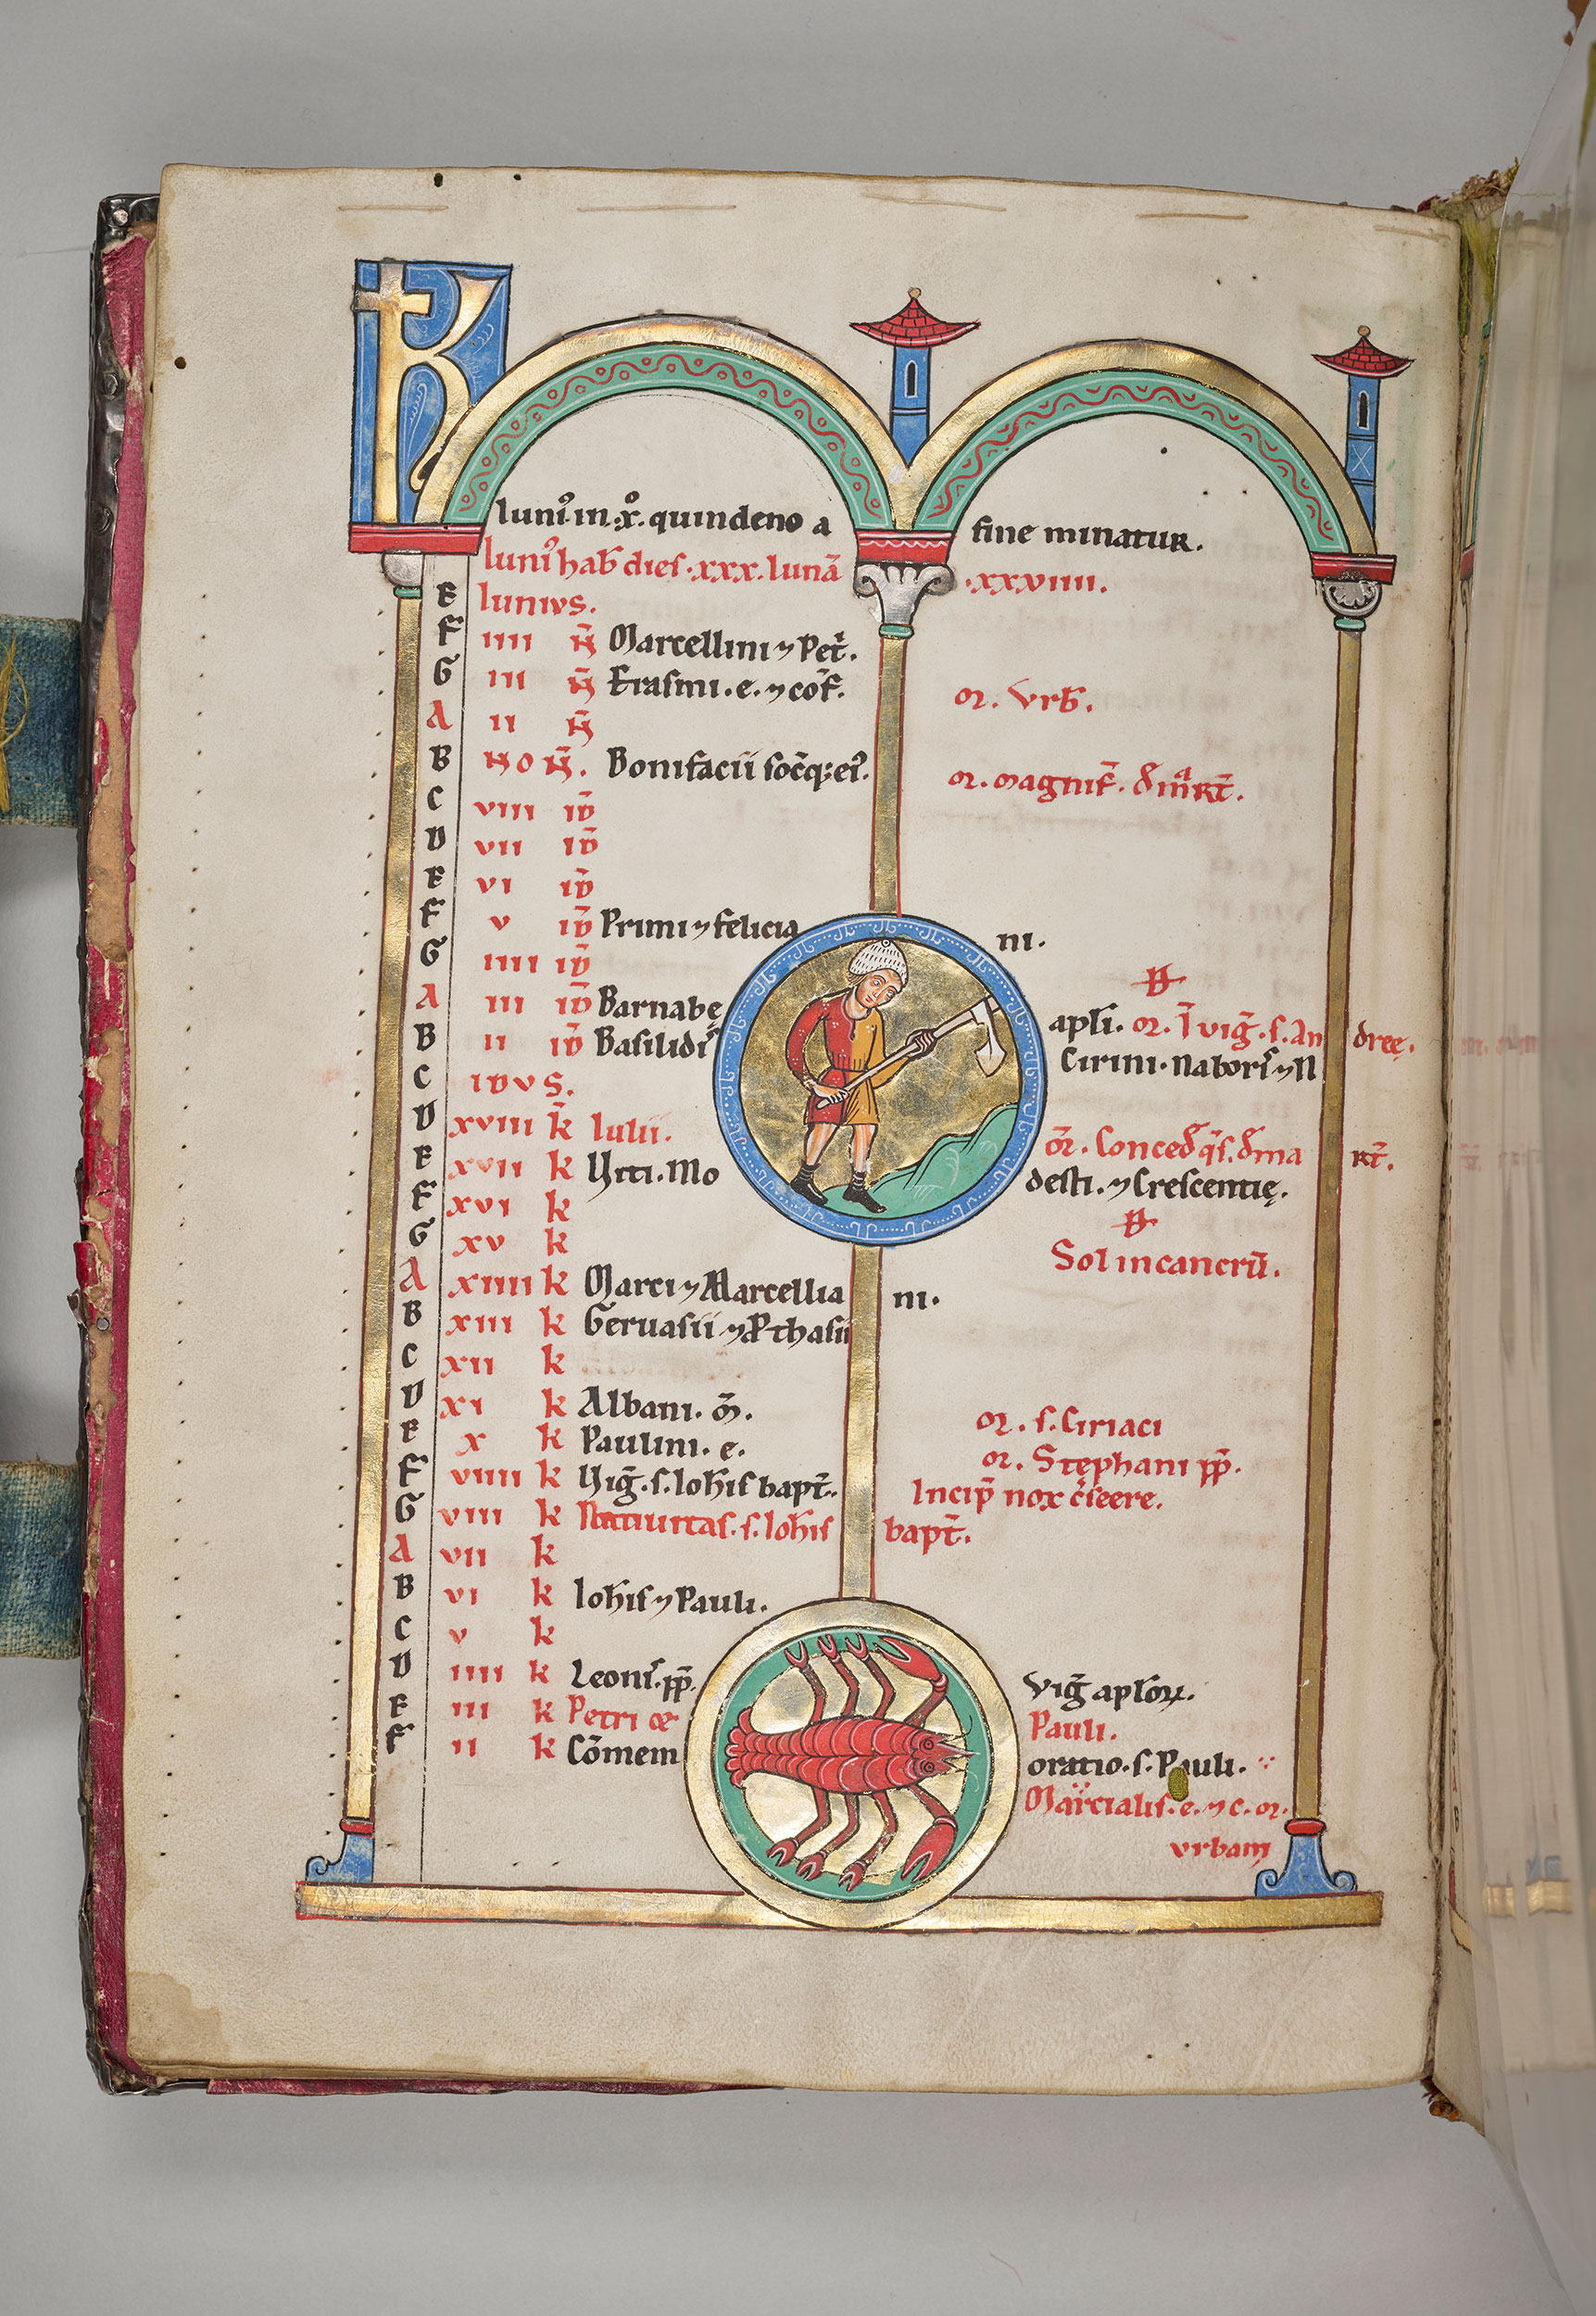 K
Iuni᷒ in .x̊. quindeno a fine minatur.
Iuni᷒ hab̅ dies .xxx. lunā .xxviiii.
E Iunivs.
F iiii N̄ Marcellini ⁊ Pet̄.
G iii N̄ Erasmi. e. ⁊ cōf. or. Vrb̄.
A ii N̄
B NO N̄. Bonifacii soc̄q; ei᷒. or. Magnif̄. d̄ mͣrt̄.
C viii id̄
D vii id̄
E vi id̄
F v id̄ Primi ⁊ felicia ni.
G iiii id̄
A iii id̄ Barnabę apl̄i. or. ī viḡ. s. Andreę.
B ii id̄ Basilidi᷒ Cirini. Nabori᷒ ⁊ N
C idvs.
D xviii k̄ Iulii. or̄. Conced̄ q̄s. d̄ mart̄.
E xvii k Viti. Modesti. ⁊ Crescentię.
F xvi k
G xv k Sol in cancrū.
A xiiii k Marci ⁊ Marcelliani.
B xiii k Geruasii ⁊ Ꝓthasii
C xii k
D xi k Albani. m̄. or. s. Ciriaci
E x k Paulini. e. or. Stephani pp̄.
F viiii k Viḡ. s. Ioh̄is bapt̄. Incip̄ nox c̄scere.
G viii k Natiuitas. s. Ioh̄is bapt̄.
A vii k
B vi k Ioh̄is ⁊ Pauli.
C v k
D iiii k Leoni᷒. pp̄. Viḡ aploꝝ.
E iii k Petri & Pauli.
F ii k Cōmem oratio. s. Pauli.
Marcialis. e. ⁊ c. or.
vrbani